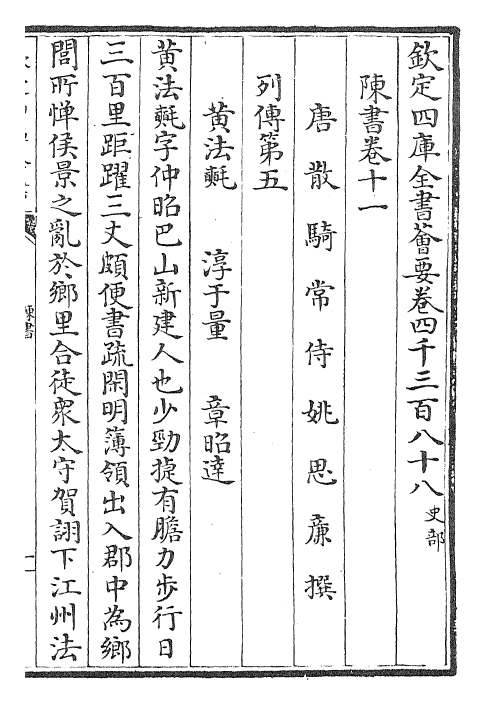 欽定四庫全書薈要卷四千三百八十八 史部
陳書卷十一
唐散騎常侍姚思廉撰
列傳第五
黃法𣰰 淳于量 章昭達
黃法𣰰字仲昭巴山新建人也少勁捷有膽力步行日
三百里距躍三丈頗便書疏閑明簿領出入郡中為鄉
閭所憚侯景之亂於鄉里合徒衆太守賀詡下江州法
陳書